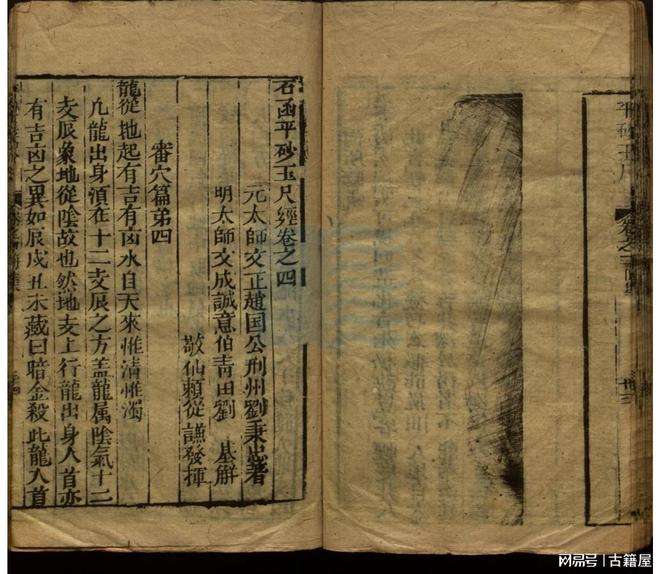 石函平砂玉尺經卷之四
元太師文正趙国公刑州劉秉忠著
明太師文成誠意伯青田劉 基解
敬仙賴從謙發揮
審穴篇第四
龍從地起有吉有凶水自天來惟清惟濁
凢龍出身湏在十二支辰之方盖龍属陰氣十二
支辰象地從陰故也然地支上行龍出身入首亦
有吉凶之異如辰戌丑未藏曰暗金殺此龍入首
平砂玉尺
卷之三
网易号 | 古籍屋